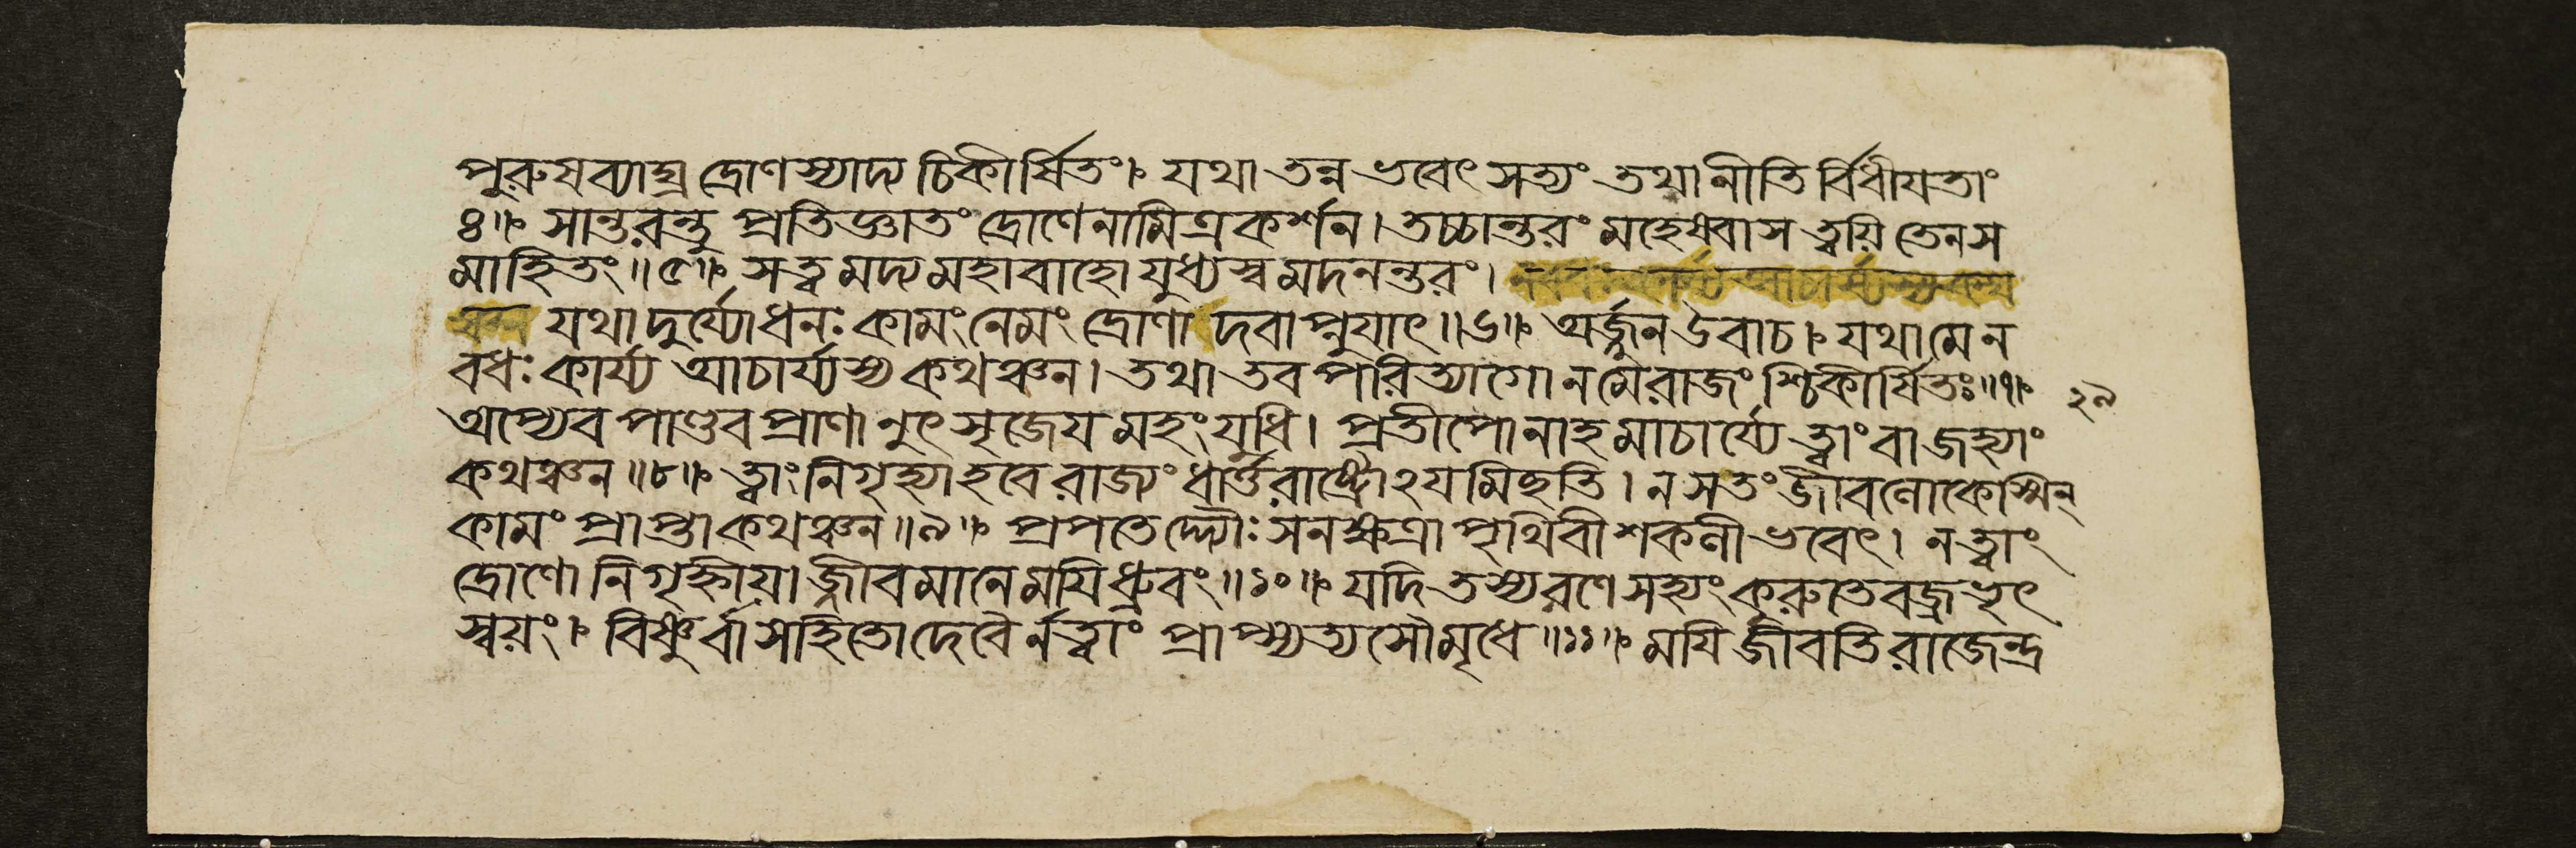 পুরুষব্যাঘ্র দ্রোণস্যাদ্য চিকীর্ষিতং। যথা তন্ন ভবেৎ সত্যং তথা নীতি র্বিধীযতাং
৪॥ সান্তরন্তু প্রতিজ্ঞাতং দ্রোণেনামিত্রকর্শন। তচ্চান্তরং মহেষ্বাস ত্বয়ি তেন স
মাহিতং॥৫॥ স ত্বমদ্য মহাবাহো যুধ্যস্ব মদনন্তরং।
যথা দুর্য্যোধনঃ কামং নেমং দ্রোণাদবাপ্নুযাৎ॥৬॥ অর্জ্জুন উবাচ। যথা মে ন
বধঃ কার্য্য আচার্য্যস্য কথঞ্চন। তথা তব পরিত্যাগো ন মে রাজংশ্চিকীর্ষিতঃ॥৭॥ ২৯
অপ্যেব পাণ্ডব প্রাণানুৎসৃজেযমহং যুধি। প্রতীপো নাহমাচার্য্যে ত্বাং বা জহ্যাং
কথঞ্চন॥৮॥ ত্বাং নিগৃহ্যাহবে রাজ্যং ধার্ত্তরাষ্ট্রোঽযমিছতি। ন স তং জীবলোকেস্মিন্
কামং প্রাপ্তা কথঞ্চন॥৯॥ প্রপতেদ্দ্যৌঃ সনক্ষত্রা পৃথিবী শকলী ভবেৎ। ন ত্বাং
দ্রোণো নিগৃহ্নীয়া জ্জীবমানে মযি ধ্রুবং॥১০॥ যদি তস্য রণে সহ্যং কুরুতে বজ্রভৃৎ
স্বয়ং। বিষ্ণুর্বা সহিতো দেবৈ র্নত্বাং প্রাপ্স্যত্যসৌ মৃধে॥১১॥ মযি জীবতি রাজেন্দ্র